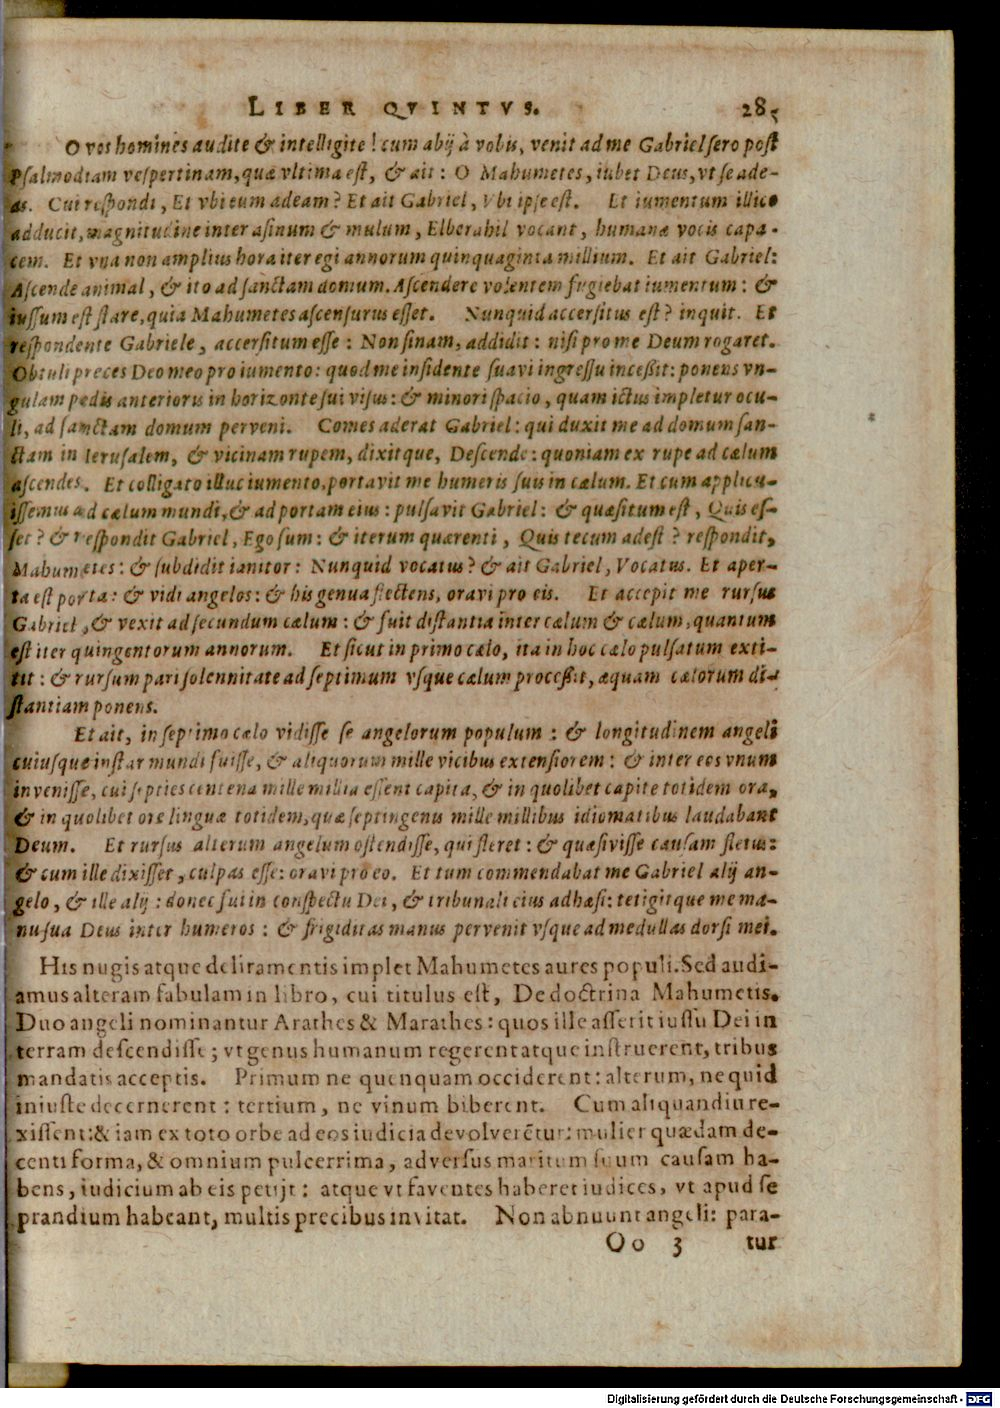 LIBER QVINTVS. 285
O vos homines audite & intelligite! cum abij à vobis, venit ad me Gabriel sero post
Psalmodiam vespertinam, quæ vltima est, & ait: O Mahumetes, iubet Deus, vt se ade-
as. Cui respondi, Et vbi eum adeam? Et ait Gabriel, Vbi ipse est. Et iumentum illico
adducit, magnitudine inter asinum & mulum, Elberahil vocant, humanæ vocis capa-
cem. Et vna non amplius hora iter egi annorum quinquaginta millium. Et ait Gabriel:
Ascende animal, & ito ad sanctam domum. Ascendere volentem fugiebat iumentum: &
iussum est stare, quia Mahumetes ascensurus esset. Nunquid accersitus est? inquit. Et
respondente Gabriele, accersitum esse: Non sinam, addidit: nisi pro me Deum rogaret.
Obtuli preces Deo meo pro iumento: quod me insidente suavi ingressu incessit: ponens vn-
gulam pedis anterioris in horizonte sui visus: & minori spacio, quam ictus impletur ocu-
li, ad sanctam domum perveni. Comes aderat Gabriel: qui duxit me ad domum san-
ctam in Ierusalem, & vicinam rupem, dixitque, Descende: quoniam ex rupe ad cælum
ascendes. Et colligato illuc iumento, portavit me humeris suis in cælum. Et cum applicu-
issemus ad cælum mundi, & ad portam eius: pulsavit Gabriel: & quæsitum est, Quis es-
set? & respondit Gabriel, Ego sum: & iterum quærenti, Quis tecum adest? respondit,
Mahumetes: & subdidit ianitor: Nunquid vocatus? & ait Gabriel, Vocatus. Et aper-
ta est porta: & vidi angelos: & his genua flectens, oravi pro eis. Et accepit me rursus
Gabriel, & vexit ad secundum cælum: & fuit distantia inter cælum & cælum, quantum
est iter quingentorum annorum. Et sicut in primo cælo, ita in hoc cælo pulsatum exti-
tit: & rursum pari solennitate ad septimum vsque cælum processit, æquam cælorum di-
stantiam ponens.
Et ait, in septimo cælo vidisse se angelorum populum: & longitudinem angeli
cuiusque instar mundi fuisse, & aliquorum mille vicibus extensiorem: & inter eos vnum
invenisse, cui septies centena mille millia essent capita, & in quolibet capite totidem ora,
& in quolibet ore linguæ totidem, quæ septingenus mille millibus idiomatibus laudabant
Deum. Et rursus alterum angelum ostendisse, qui fleret: & quæsivisse causam fletus:
& cum ille dixisset, culpas esse: oravi pro eo. Et tum commendabat me Gabriel alij an-
gelo, & ille alij: donec fui in conspectu Dei, & tribunali eius adhæsi: tetigitque me ma-
nu sua Deus inter humeros: & frigiditas manus pervenit vsque ad medullas dorsi mei.
His nugis atque deliramentis implet Mahumetes aures populi. Sed audi-
amus alteram fabulam in libro, cui titulus est, De doctrina Mahumetis.
Duo angeli nominantur Arathes & Marathes: quos ille asserit iussu Dei in
terram descendisse; vt genus humanum regerent atque instruerent, tribus
mandatis acceptis. Primum ne quenquam occiderent: alterum, ne quid
iniuste decernerent: tertium, ne vinum biberent. Cum aliquandiu re-
xissent: & iam ex toto orbe ad eos iudicia devolverētur: mulier quædam de-
centi forma, & omnium pulcerrima, adversus maritum suum causam ha-
bens, iudicium ab eis petijt: atque vt faventes haberet iudices, vt apud se
prandium habeant, multis precibus invitat. Non abnuunt angeli: para-
Oo 3 tur
Digitalisierung gefördert durch die Deutsche Forschungsgemeinschaft - DFG